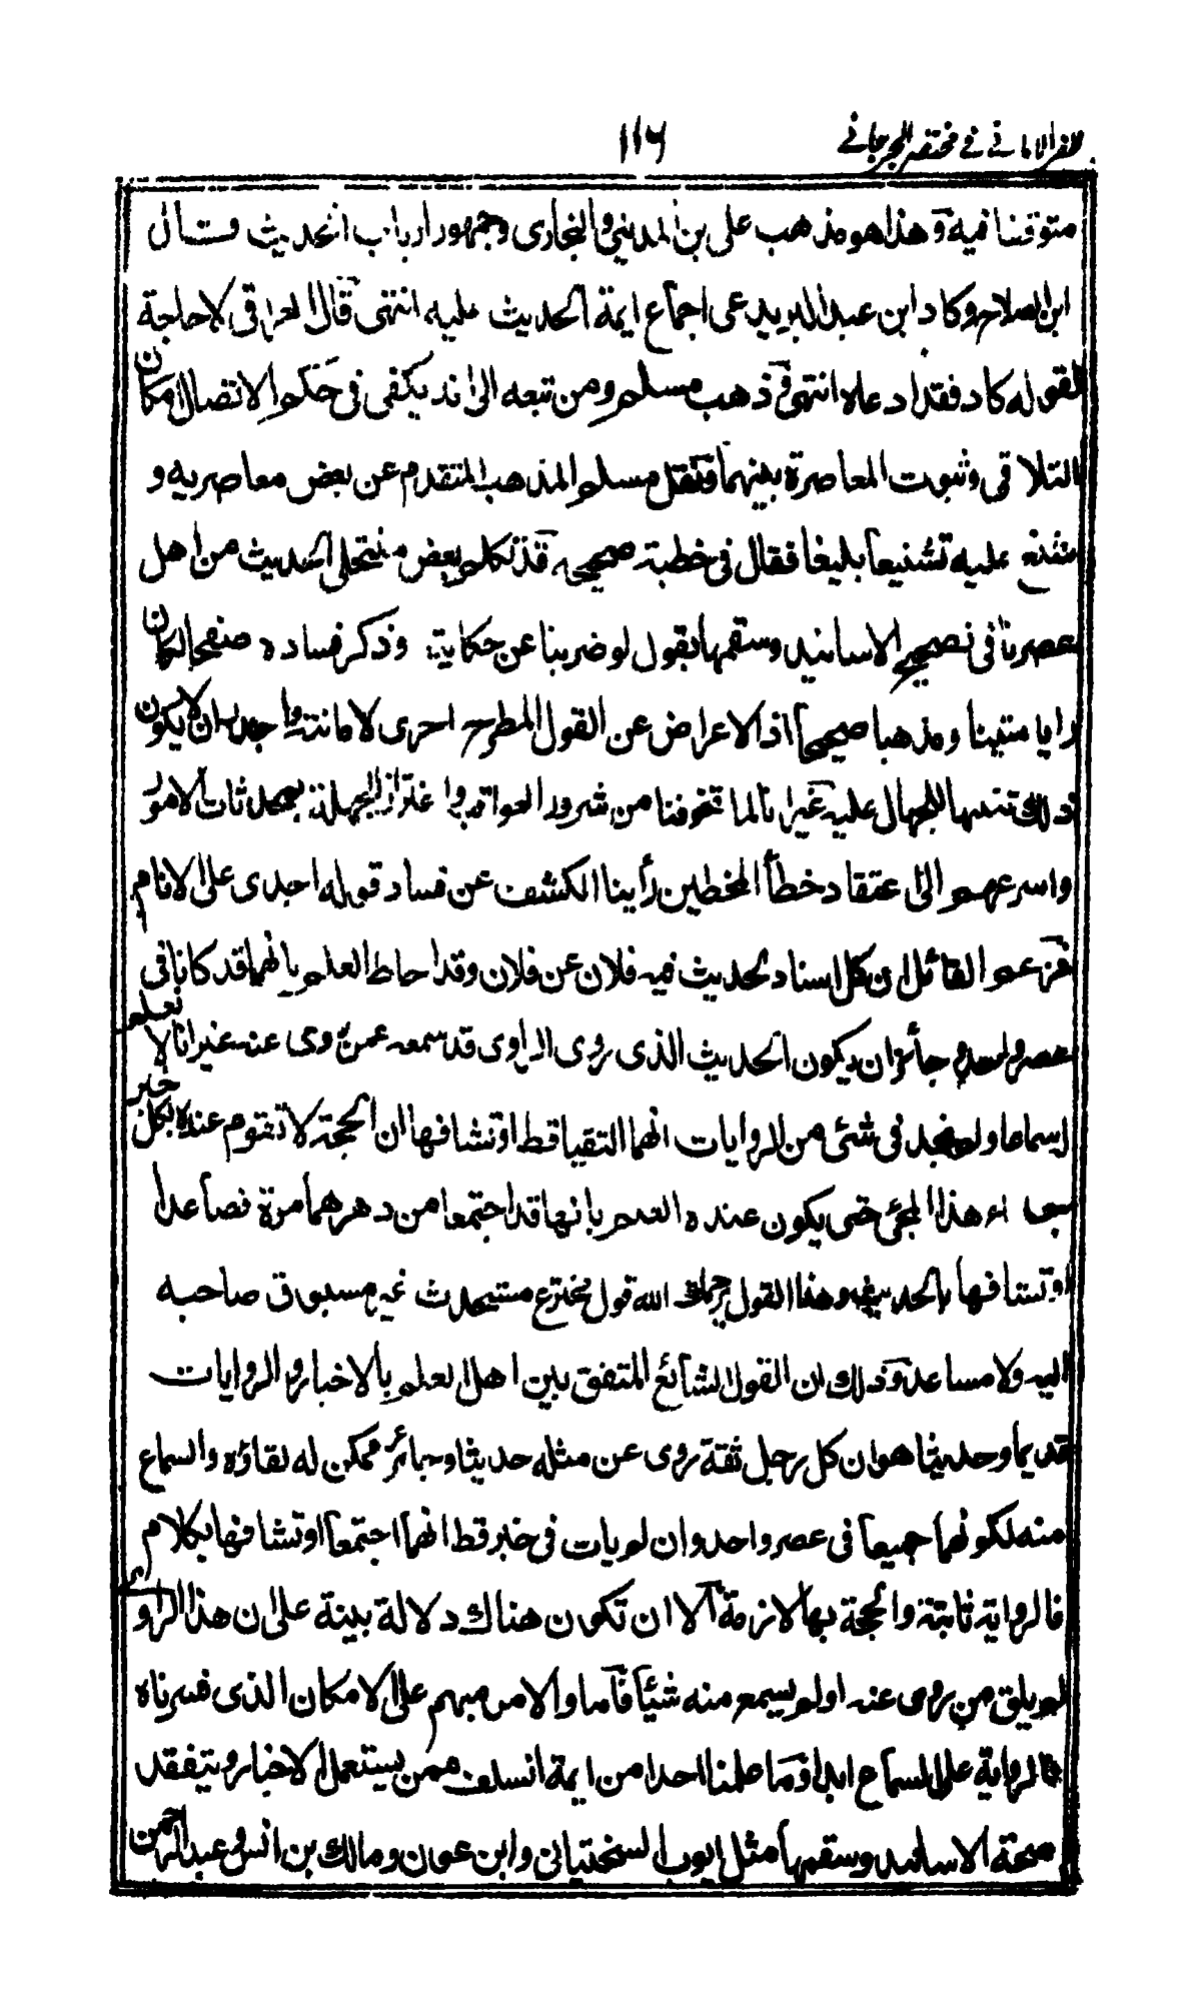 ظفر الامانی فی مختصر الجرجانی
۱۱۶
متوقفنا فیه وهذا هو مذهب علی بن المدینی والبخاری وجمهور ارباب الحدیث وقال
ابن الصلاح وکاد ابن عبد البر یدعی اجماع ایمة الحدیث علیه انتهی قال العراقی لا حاجة
لقوله کاد فقد ادعاه انتهی وذهب مسلم ومن تبعه الی انه یکفی فی حکم الاتصال امکان
التلاقی وثبوت المعاصرة بینهما ونقل مسلم المذهب المتقدم عن بعض معاصریه و
شنع علیه تشنیعا بلیغا فقال فی خطبة صحیحه قد تکلم بعض منتحلی الحدیث من اهل
عصرنا فی تصحیح الاسانید وسقمها بقول لو ضربنا عن حکایته وذکر فساده صفحا لکان
رایا متینا ومذهبا صحیحا اذ الاعراض عن القول المطرح احری لاماتته واجدر ان لا یکون
ذلك تنبیها للجهال علیه غیر انا لما تخوفنا من شرور العواقب واغترار الجهلة بمحدثات الامور
واسرعهم الی اعتقاد خطأ المخطین رأینا الکشف عن فساد قوله اجدی علی الانام
فزعم القائل ان کل اسناد لحدیث فیه فلان عن فلان وقد احاط العلم بانهما قد کانا فی
عصر واحد وجائز ان یکون الحدیث الذی روی الراوی قد سمعه عمن روی عنه غیر انا لا نعلم
له سماعا ولم نجد فی شئ من الروایات انهما التقیا قط او تشافها ان الحجة لا تقوم عنده بکل خبر
جاء هذا المجئ حتی یکون عنده العلم بانهما قد اجتمعا من دهرهما مرة فصاعدا
او تشافها بالحدیث وهذا القول یرحمك الله قول مخترع مستحدث غیر مسبوق صاحبه
الیه ولا مساعد وذلك ان القول الشائع المتفق بین اهل العلم بالاخبار والروایات
قدیما وحدیثا هو ان کل رجل ثقة روی عن مثله حدیثا وجائز ممکن له لقاؤه والسماع
منه لکونهما جمیعا فی عصر واحد وان لم یات فی خبر قط انهما اجتمعا او تشافها بکلام
فالروایة ثابتة والحجة بها لازمة الا ان تکون هناك دلالة بینة علی ان هذا الراوی
لم یلق من روی عنه او لم یسمع منه شیئا فاما والامر مبهم علی الامکان الذی فسرناه
فالروایة علی السماع ابدا وما علمنا احدا من ایمة السلف ممن یستعمل الاخبار ویتفقد
صحة الاسانید وسقمها مثل ایوب السختیانی وابن عون ومالك بن انس وعبد الرحمن